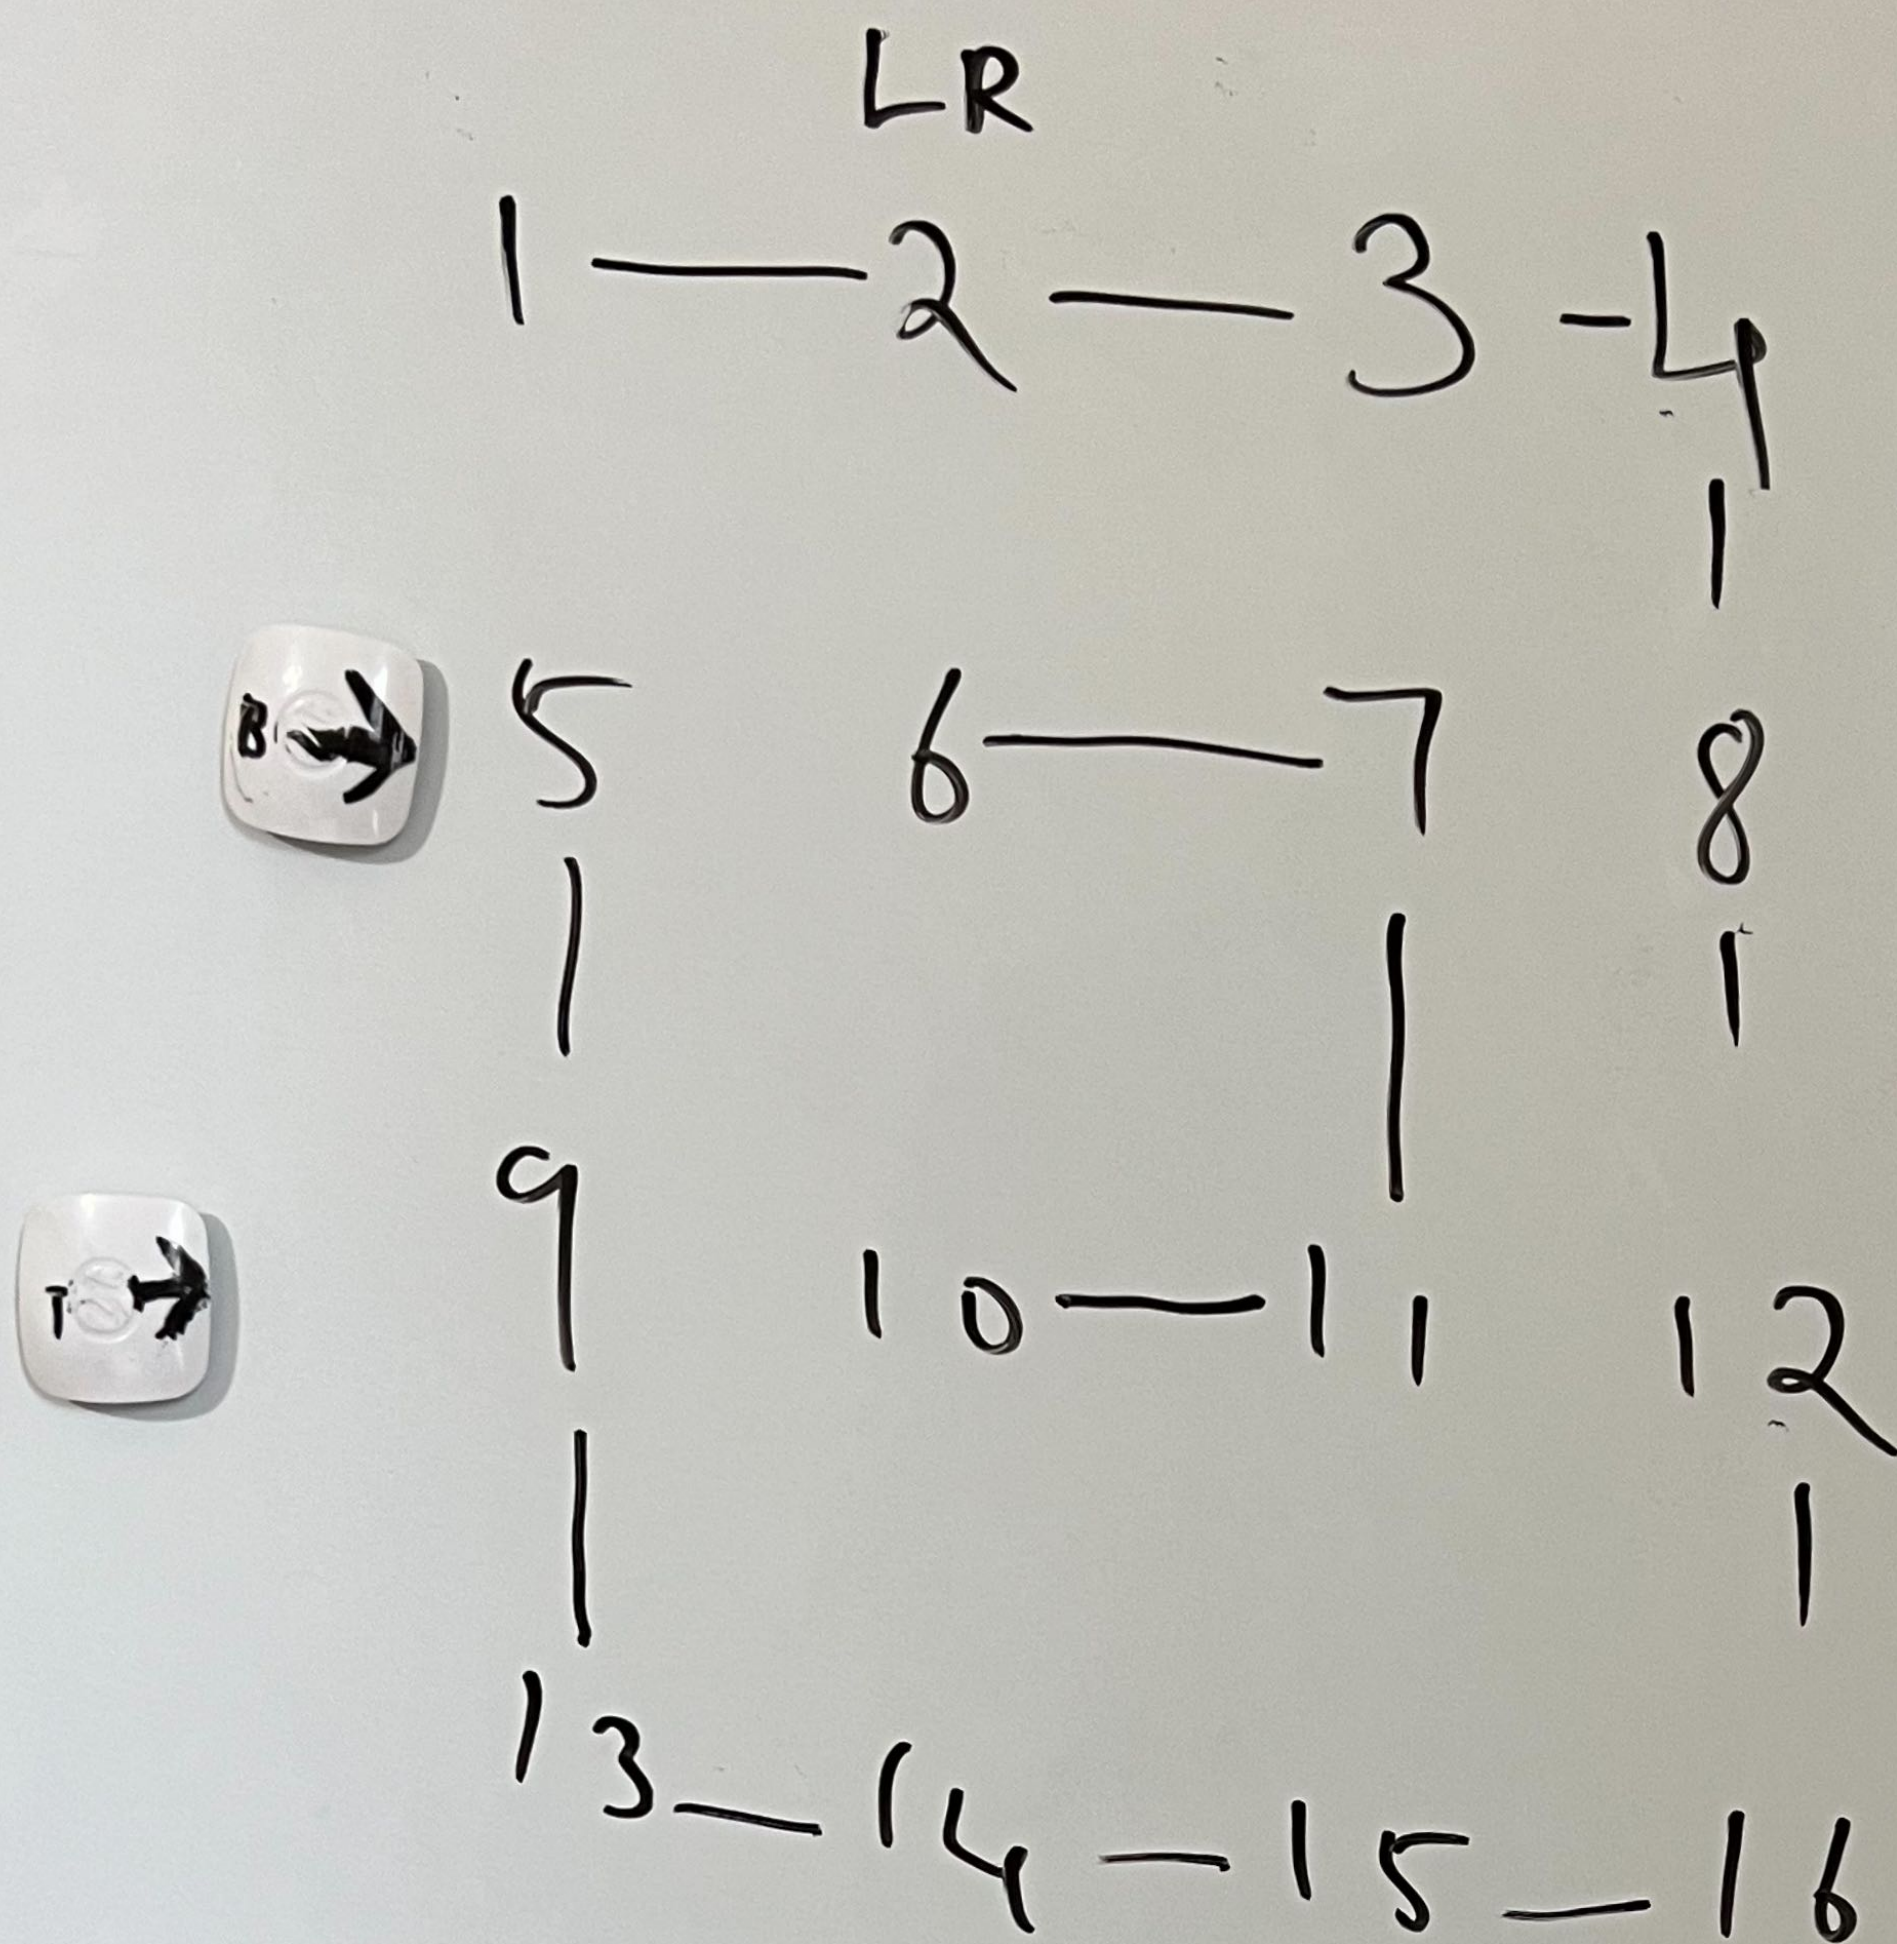 LR
1 — 2 — 3 - 4
|
B → 5 6 — 7 8
| | |
T → 9 10 — 11 12
| |
13 — 14 — 15 — 16